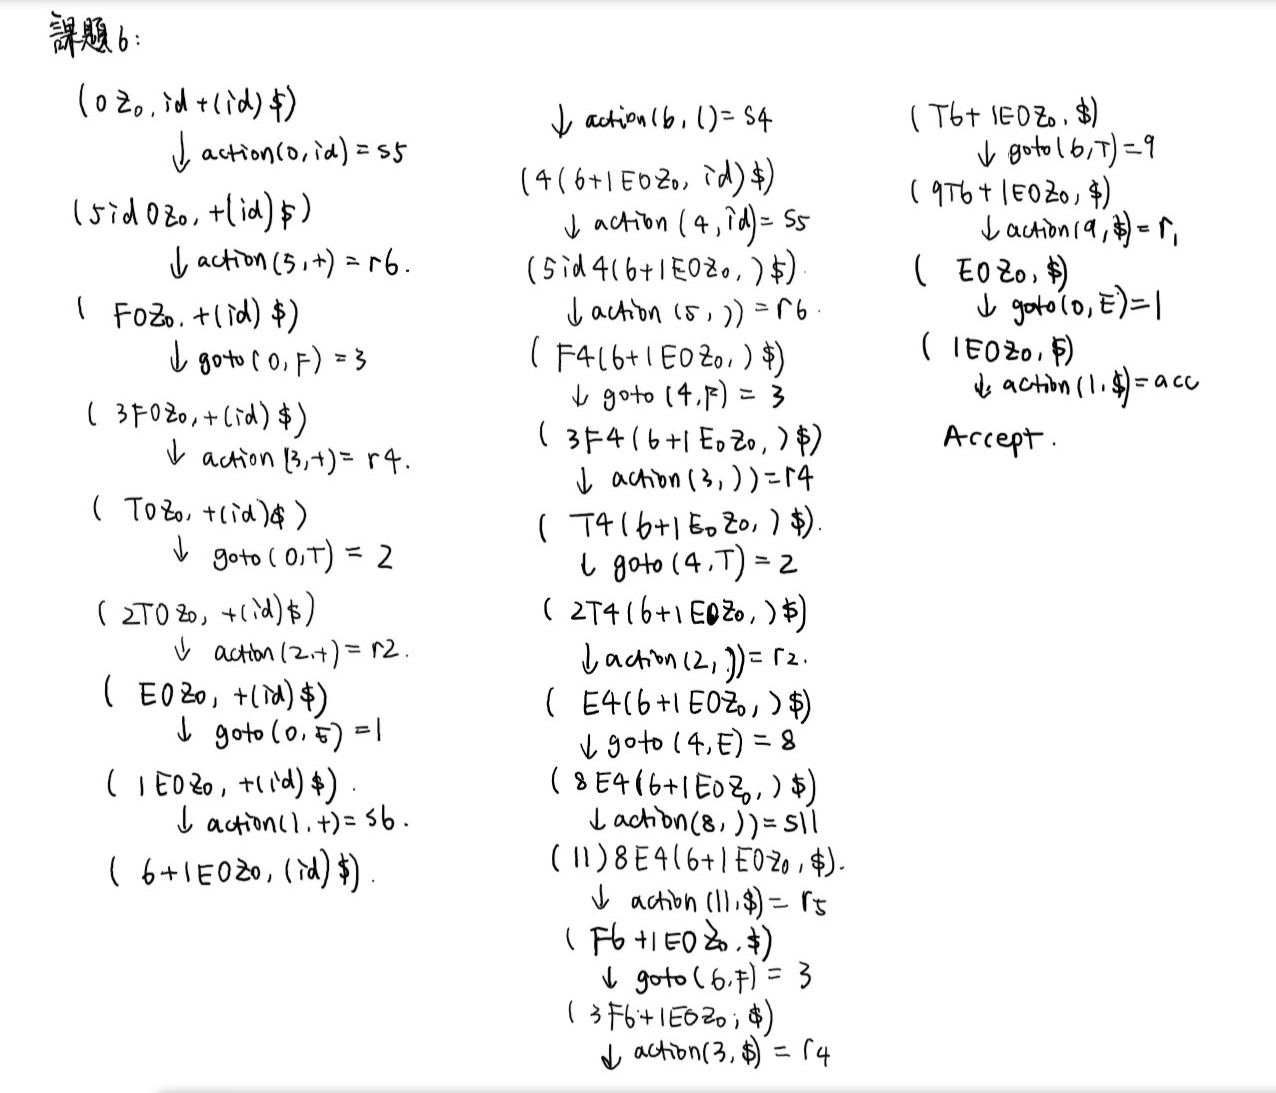 課題6:
(0Z₀, id+(id)$)
↓ action(0,id)=s5
(5id0Z₀, +(id)$)
↓ action(5,+)=r6.
( F0Z₀, +(id)$)
↓ goto(0,F)=3
(3F0Z₀,+(id)$)
↓ action(3,+)=r4.
( T0Z₀, +(id)$)
↓ goto(0,T)=2
(2T0Z₀, +(id)$)
↓ action(2,+)=r2.
( E0Z₀, +(id)$)
↓ goto(0,E)=1
( 1E0Z₀, +(id)$).
↓ action(1,+)=s6.
( 6+1E0Z₀, (id)$).
↓ action(6,()=s4
(4(6+1E0Z₀, id)$)
↓ action(4,id)=s5
(5id4(6+1E0Z₀, )$).
↓ action(5,))=r6.
( F4(6+1E0Z₀, )$)
↓ goto(4,F)=3
( 3F4(6+1E0Z₀, )$)
↓ action(3,))=r4
( T4(6+1E0Z₀, )$).
↓ goto(4,T)=2
( 2T4(6+1E0Z₀, )$)
↓ action(2,))=r2.
( E4(6+1E0Z₀, )$)
↓ goto(4,E)=8
( 8E4(6+1E0Z₀, )$)
↓ action(8,))=s11
(11)8E4(6+1E0Z₀,$).
↓ action(11,$)=r5
( F6+1E0Z₀,$)
↓ goto(6,F)=3
( 3F6+1E0Z₀,$)
↓ action(3,$)=r4
( T6+1E0Z₀,$)
↓ goto(6,T)=9
( 9T6+1E0Z₀,$)
↓ action(9,$)=r₁
( E0Z₀,$)
↓ goto(0,E)=1
( 1E0Z₀,$)
↓ action(1,$)=acc
Accept.